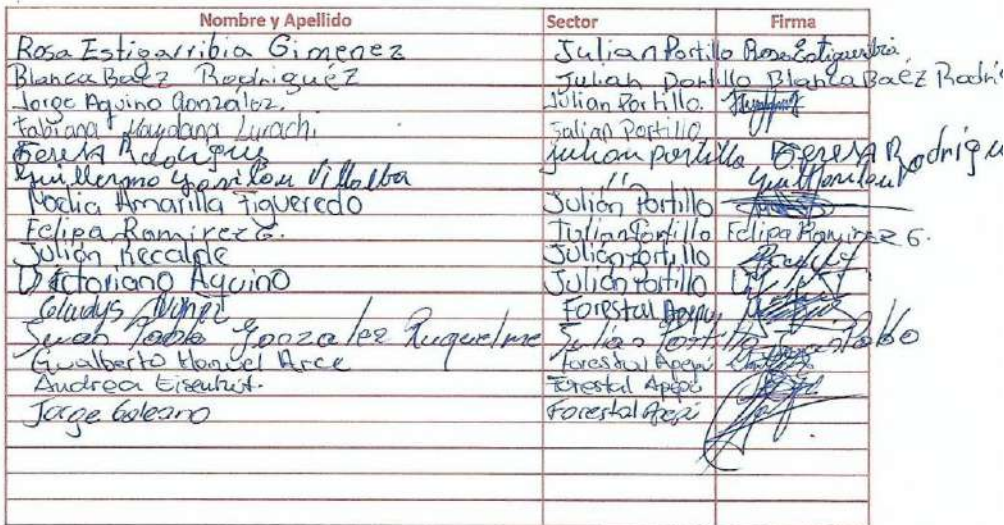 Nombre y Apellido Sector Firma
Rosa Estigarribia Gimenez Julian Portillo Rosa Estigarribia
Blanca Baéz Rodriguéz Julian Portillo Blanca Baéz Rodrig
Jorge Aquino Gonzalez. Julian Portillo.
Fabiana Maydana Lurachi. Julian Portillo
Teresa Rodrigue Julian portillo Teresa Rodrigu
Guillermo Villalba "
Nodia Amarilla Figueredo Julián Portillo
Felipa Ramirez G. Julian Portillo Felipa Ramirez G.
Julián Recalde Julián Portillo
Victoriano Aquino Julián Portillo
Gladys Nuñez Forestal Apepu
Juan Pablo Gonzalez Ruquelme Julián Portillo Juan Pablo
Gualberto Manuel Arce Forestal Apepú
Andrea Eisenhut. Forestal Apepú
Jorge Galeano Forestal Apepú